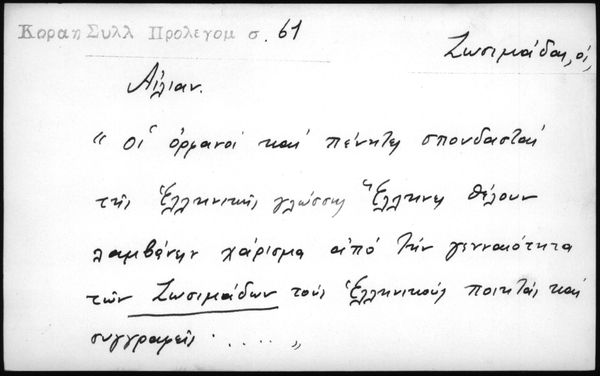 Κοραη Συλλ Προλεγομ σ. 61
Ζωσιμάδαι, οἱ,
Αἰλιαν.
" Οἱ ὀρφανοί καί πένητες σπουδασταί
τῆς Ἑλληνικῆς γλώσσης Ἕλληνες θέλουν
λαμβάνειν χάρισμα ἀπό τήν γενναιότητα
τῶν Ζωσιμάδων τούς Ἑλληνικούς ποιητάς καί
συγγραφεῖς . . . . . "